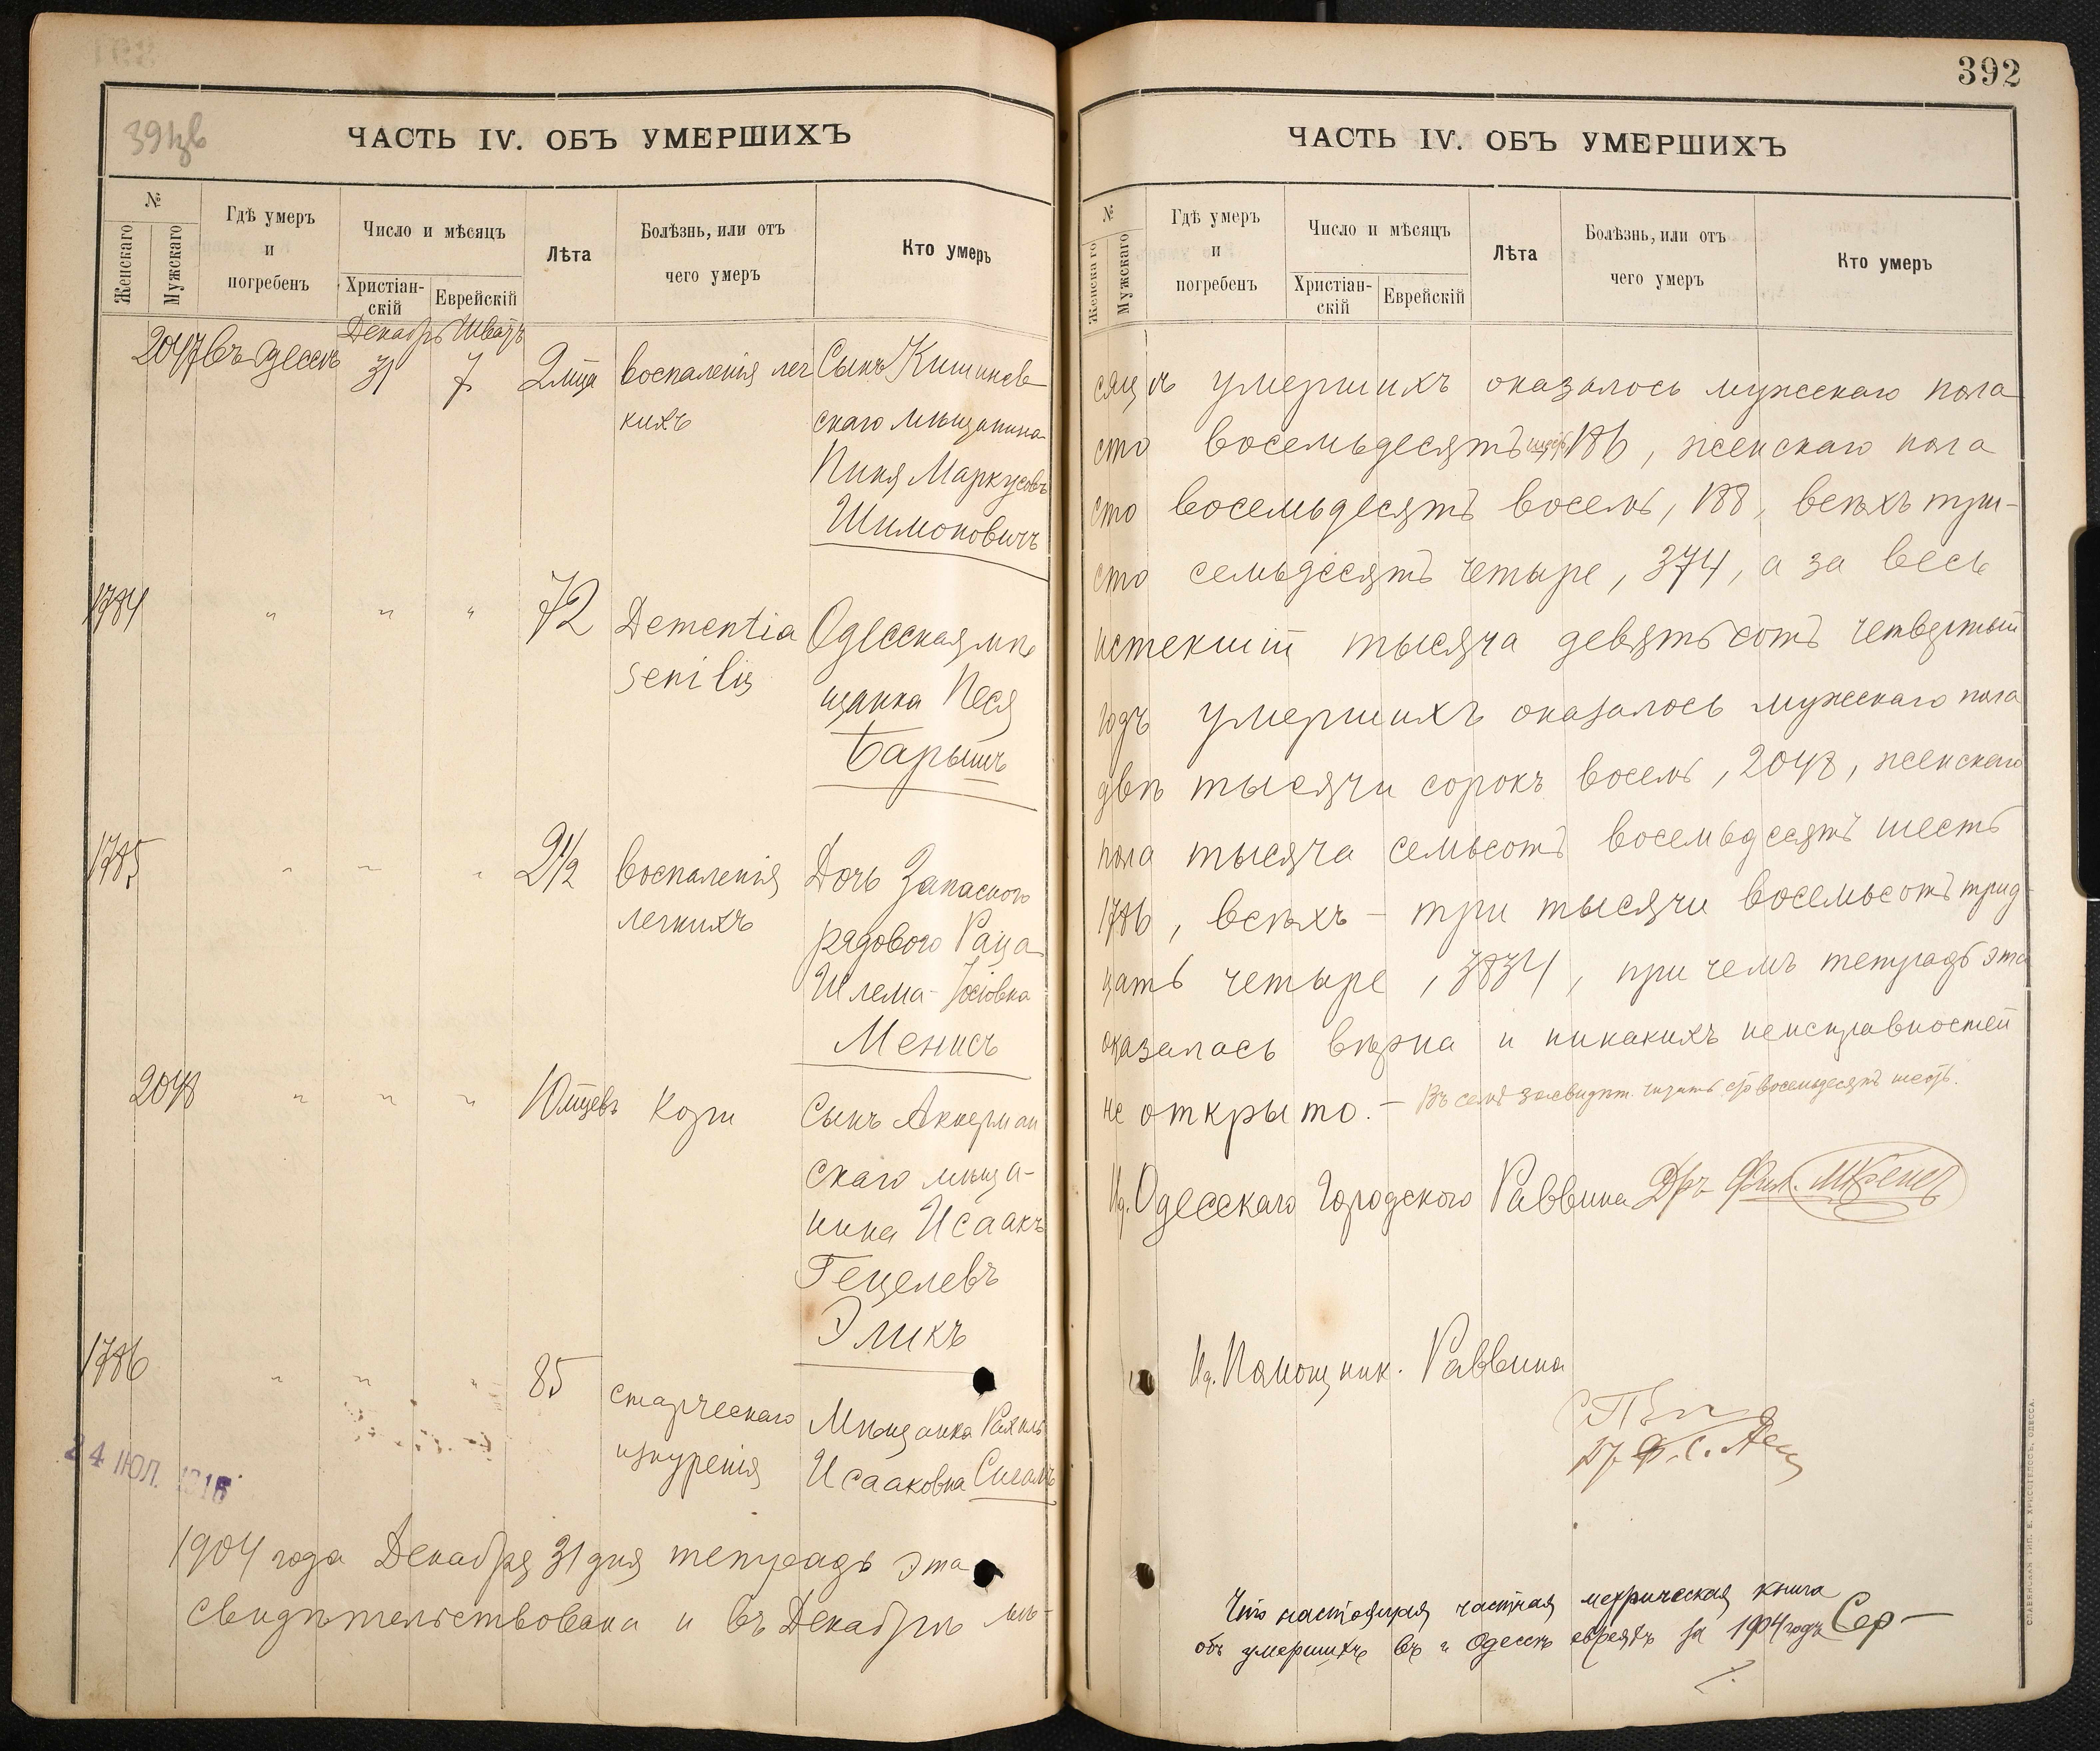 ЧАСТЬ IV. ОБЪ УМЕРШИХЪ
№
Женскаго
Мужскаго
Гдѣ умеръ
и
погребенъ
Число и мѣсяцъ
Христіан-
скій
Еврейскій
Лѣта
Болѣзнь, или отъ
чего умеръ
Кто умеръ
Декабрь Шватъ
2047 въ Одессѣ 31 7 2 мца воспаленія лег Сынъ Кишинев-
кихъ скаго мѣщанина
Пиня Маркусовъ
Шимоновичъ
1784 " " " 72 Dementia Одесская мѣ
senilis щанка Песя
Барышъ
1785 " " " 2 1/2 воспаленія Дочь Запасного
легкихъ рядового Раца
Шлема-Іосіовна
Менисъ
2048 " " " 10 мцевъ Кори Сынъ Аккерман
скаго мѣща-
нина Исаакъ
Гецелевъ
Эликъ
1786 " " " 85 старческаго Мѣщанка Рахиль
изнуренія Исааковна
24 ІЮЛ. 1916
1904 года Декабря 31 дня тетрадь эта
свидѣтельствована и въ Декабрѣ мѣ-
392
ЧАСТЬ IV. ОБЪ УМЕРШИХЪ
№
Женскаго
Мужскаго
Гдѣ умеръ
и
погребенъ
Число и мѣсяцъ
Христіан-
скій
Еврейскій
Лѣта
Болѣзнь, или отъ
чего умеръ
Кто умеръ
сяцѣ умершихъ оказалось мужескаго пола
сто восемьдесятъ шесть 186, женскаго пола
сто восемьдесятъ восемь, 188, всѣхъ три-
ста семьдесятъ четыре, 374, а за весь
истекшій тысяча девятьсотъ четвертый
годъ умершихъ оказалось мужескаго пола
двѣ тысячи сорокъ восемь, 2048, женскаго
пола тысяча семьсотъ восемьдесятъ шесть
1786, всѣхъ – три тысячи восемьсотъ трид-
цать четыре, 3834, при чемъ тетрадь эта
оказалась вѣрна и никакихъ неисправностей
не открыто. – Въ семъ засвидѣт. читать сто восемьдесятъ шесть.
И.д. Одесскаго Городского Раввина Д-ръ
И.д. Помощник. Раввина
Что настоящая частная метрическая книга
объ умершихъ въ г. Одессѣ евреяхъ за 1904 годъ Сер –
СЛАВЯНСКАЯ ТИП. Е. ХРИСОГЕЛОСЪ, ОДЕССА.